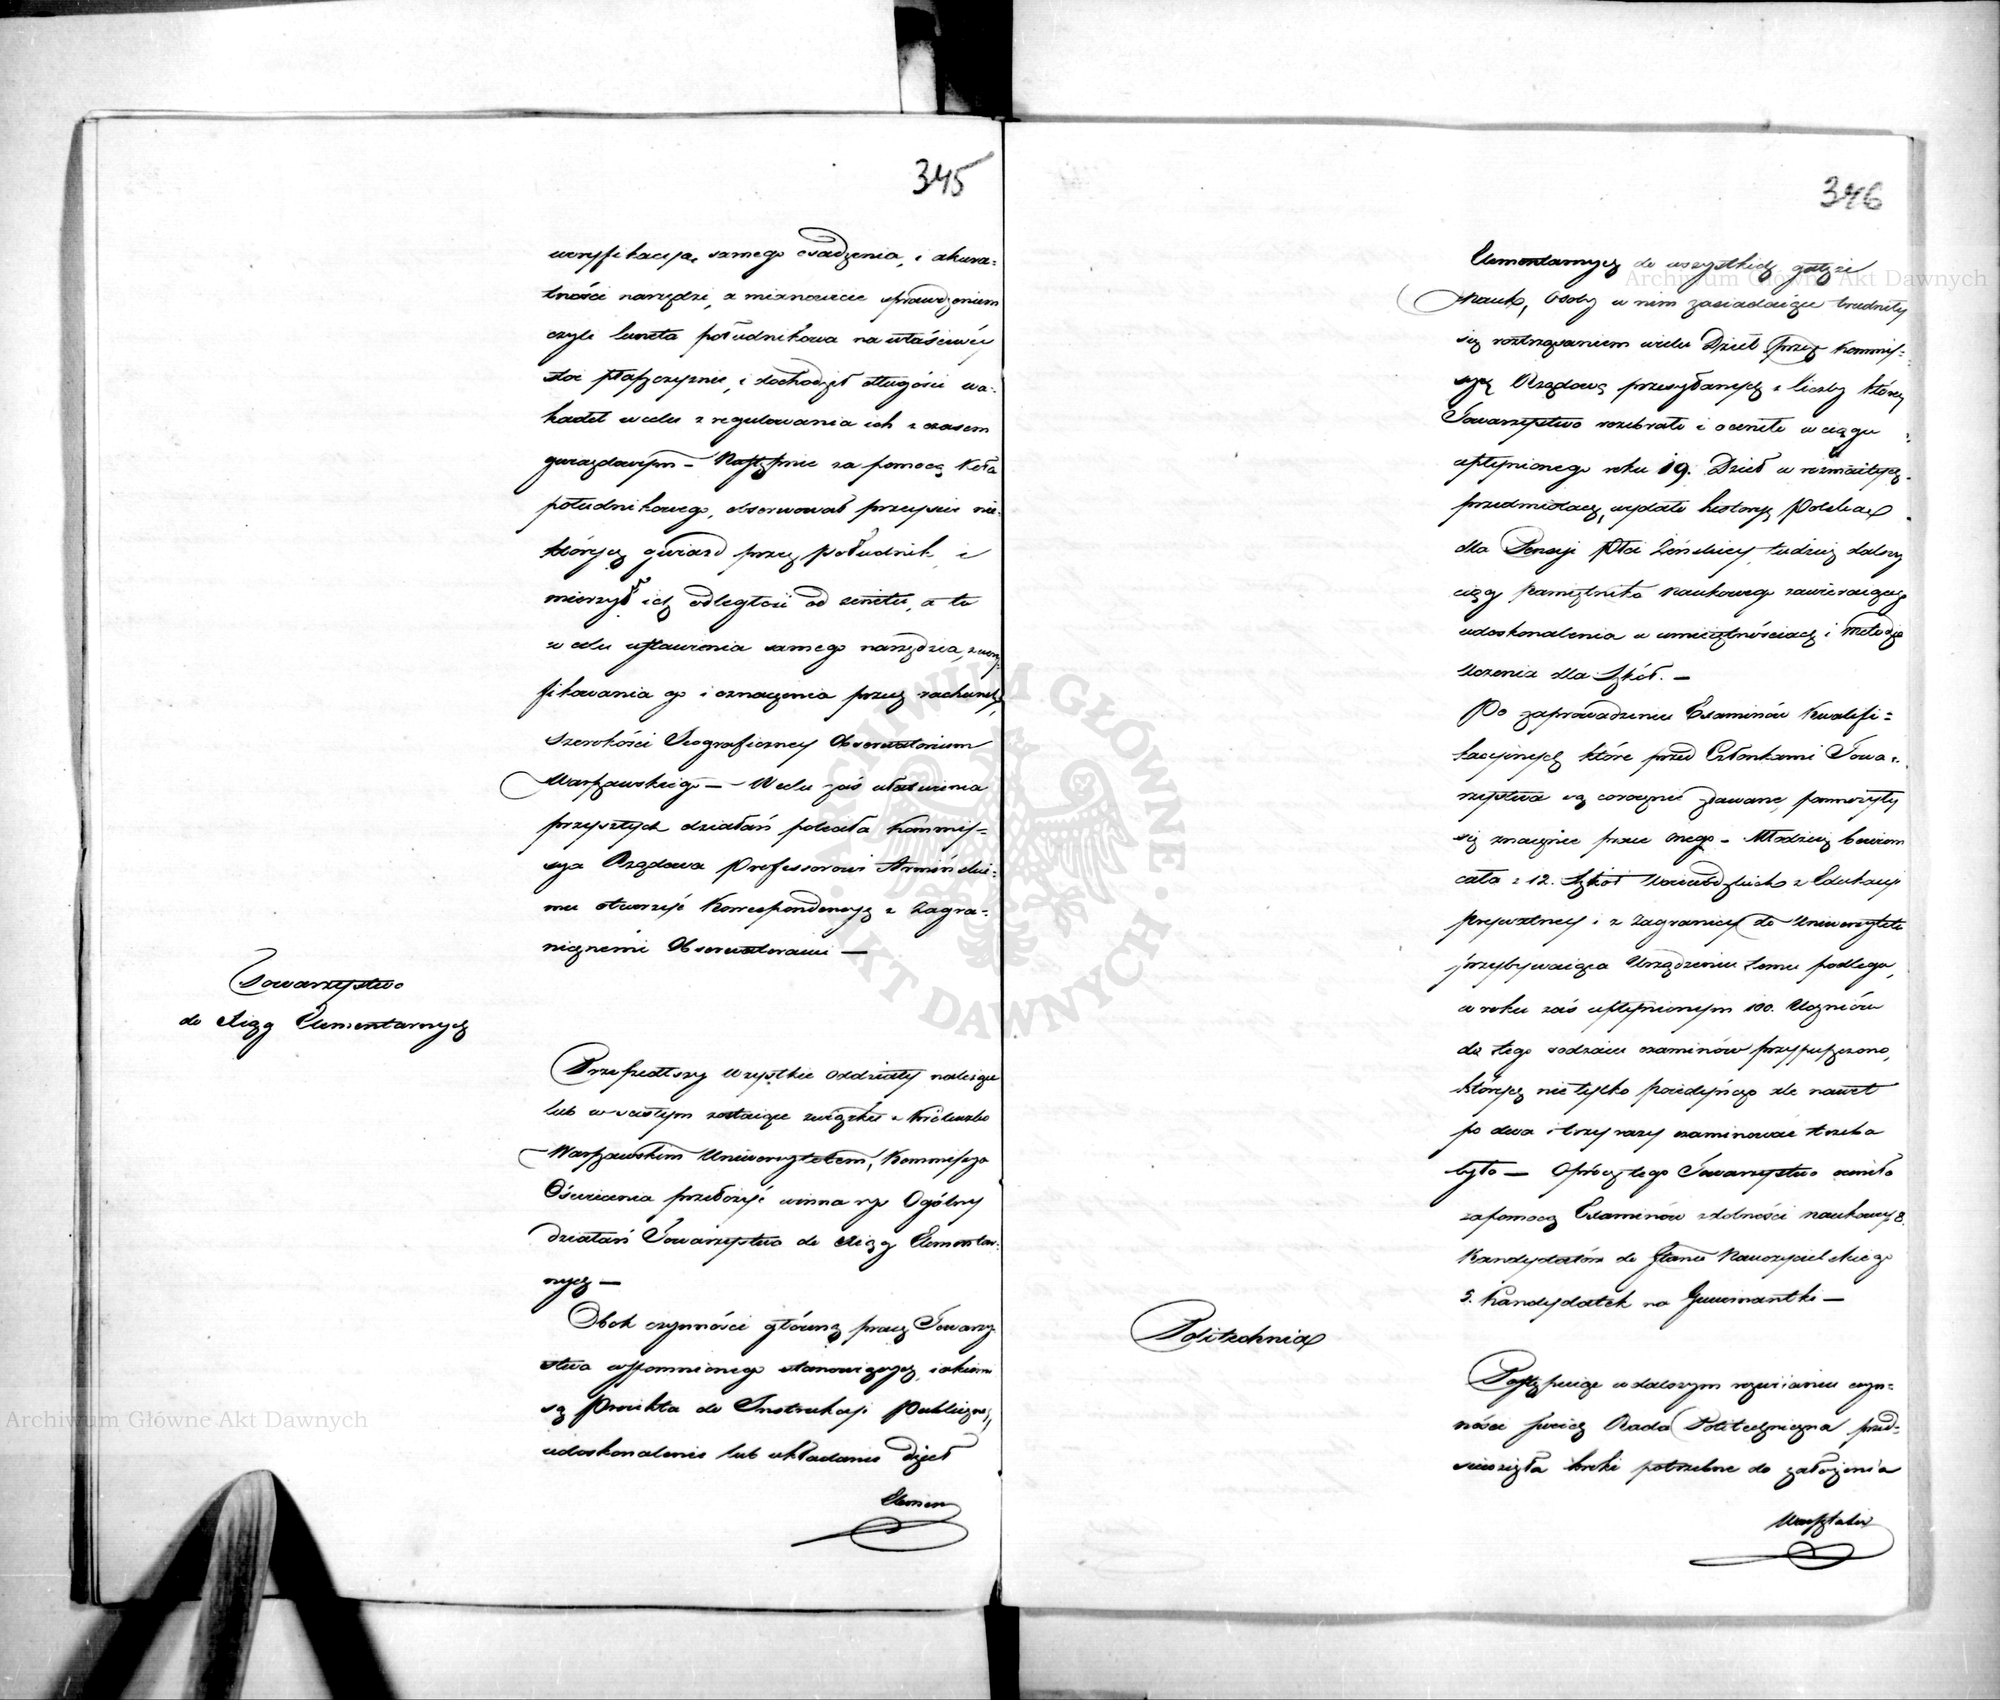 345
weryfikacyą samego osadzenia, i akura=
tności narzędzi, a mianowicie sprawdzeniem
czyli luneta południkowa na właściwéy
stoi płaszczyznie, i dochodził długości wa=
hadeł w celu zregulowania ich z czasem
gwiazdowym – Następnie za pomocą Koła
południkowego, obserwował przeyście nie=
których gwiazd przez południk, i
mierzył ich odległość od zenitu, a to
w celu ustawienia samego narzędzia, zwery=
fikowania go i oznaczenia przez rachunek,
Szerokości Jeograficzney Observatorium
Warszawskiego — W celu zaś ułatwienia
przyszłych działań poleciła Kommis=
sya Rządowa Professorowi Armińskie=
mu otworzyć Korrespondencyą z Zagra=
nicznémi Obserwatorami —
Towarzystwo
do Xiąg Elementarnych
Przeszedłszy wszystkie oddziały należące
lub w ścisłym zostaiące związku z Królewsko
Warszawskim Uniwersytetem, Kommissya
Oświecenia przełożyć winna rys Ogólny
działań Towarzystwa do Xiąg Elementar=
nych —
Obok czynności główną pracę Towarzy
stwa wspomnionego stanowiących, iakiemi
są Proiekta do Instrukcyi Publiczney,
udoskonalenie lub układanie dzieł
Elemen
346
Elementarnych do wszystkich gałęzi
Nauk, Osoby w nim zasiadaiące trudniły
się roztrząsaniem wielu Dzieł przez Kommis=
syą Rządową przesyłanych z liczby których
Towarzystwo rozebrało i oceniło w ciągu
upłynionego roku 19. Dzieł w rozmaitych
przedmiotach, wydało historyą Polską
dla Pensyi Płci Żeńskiey, tudzież dalszy
ciąg Pamiętnika Naukowego zawieraiącego
udoskonalenia w umieiętnościach i Metodzie
Uczenia dla Szkół. —
Po zaprowadzeniu Examinów Kwalifi=
kacyinych które przed Członkami Towa=
rzystwa są corocznie zdawane, pomnożyły
się znacznie prace onego – Młodzież bowiem
cała z 12. Szkół Woiewódzkich z Edukacyi
prywatney i z Zagranicy do Uniwersytetu
przybywaiąca Urządzeniu temu podlega,
w roku zaś upłynionym 100. Uczniów
do tego rodzaiu examinów przypuszczono,
których nie tylko poiedyńczo ale nawet
po dwa i trzy razy examinować trzeba
było — Oprócz tego Towarzystwo oceniło
za pomocą Examinów zdolności naukowe 8.
Kandydatów do Stanu Nauczycielskiego
5. Kandydatek na Guwernantki —
Politechnia
Postępuiąc w dalszym rozwiianiu czyn=
ności swoich Rada Politechniczna przed=
sięwzięła kroki potrzebne do założenia
Warsztatów